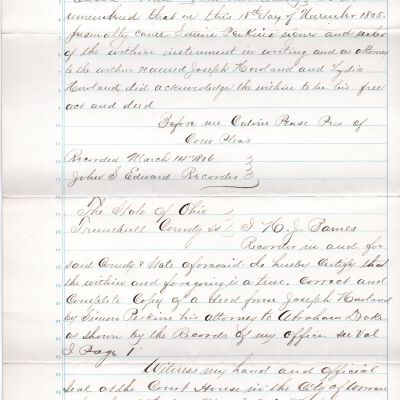 remembered that on this 18th day of November 1805
personally came Simon Perkins signer and sealer
of the within instrument in writing and as attorney
to the within named Joseph Howland and Lydia
Howland did acknowledge the within to be his free
act and deed
Before me Calvin Pease Pres of
Com Pleas
Recorded March 14th 1806
John S Edward Recorder
The State of Ohio
Trumbull County ss I H. J. Barnes
Recorder in and for
said County & State aforesaid do hereby Certify that
the within and foregoing is a true, Correct and
Complete Copy of a deed from Joseph Howland
by Simon Perkins his attorney to Abraham
as shown by the Records of my office see Vol
I Page 1
Witness my hand and official
seal at the Court House in the City of Warren